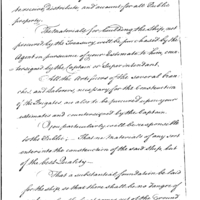 to receive, distribute, and account for all Public
property.
The materials for building the Ship, not
procured by the Treasury, will be purchased by the
Agent in pursuance of your Estimate to him, coun-
tersigned by the Captain or Superintendent.
All the Artificers of the several bran-
ches, and Laborers necessary for the Construction
of the Frigates are also to be procured upon your
estimates and countersigned by the Captain.
You particularly will be responsible
to the Public, That no materials of any sort
enter into the construction of the said Ship, but
of the best Quality.
That a substantial foundation be laid
for the ship so that there shall be no danger of